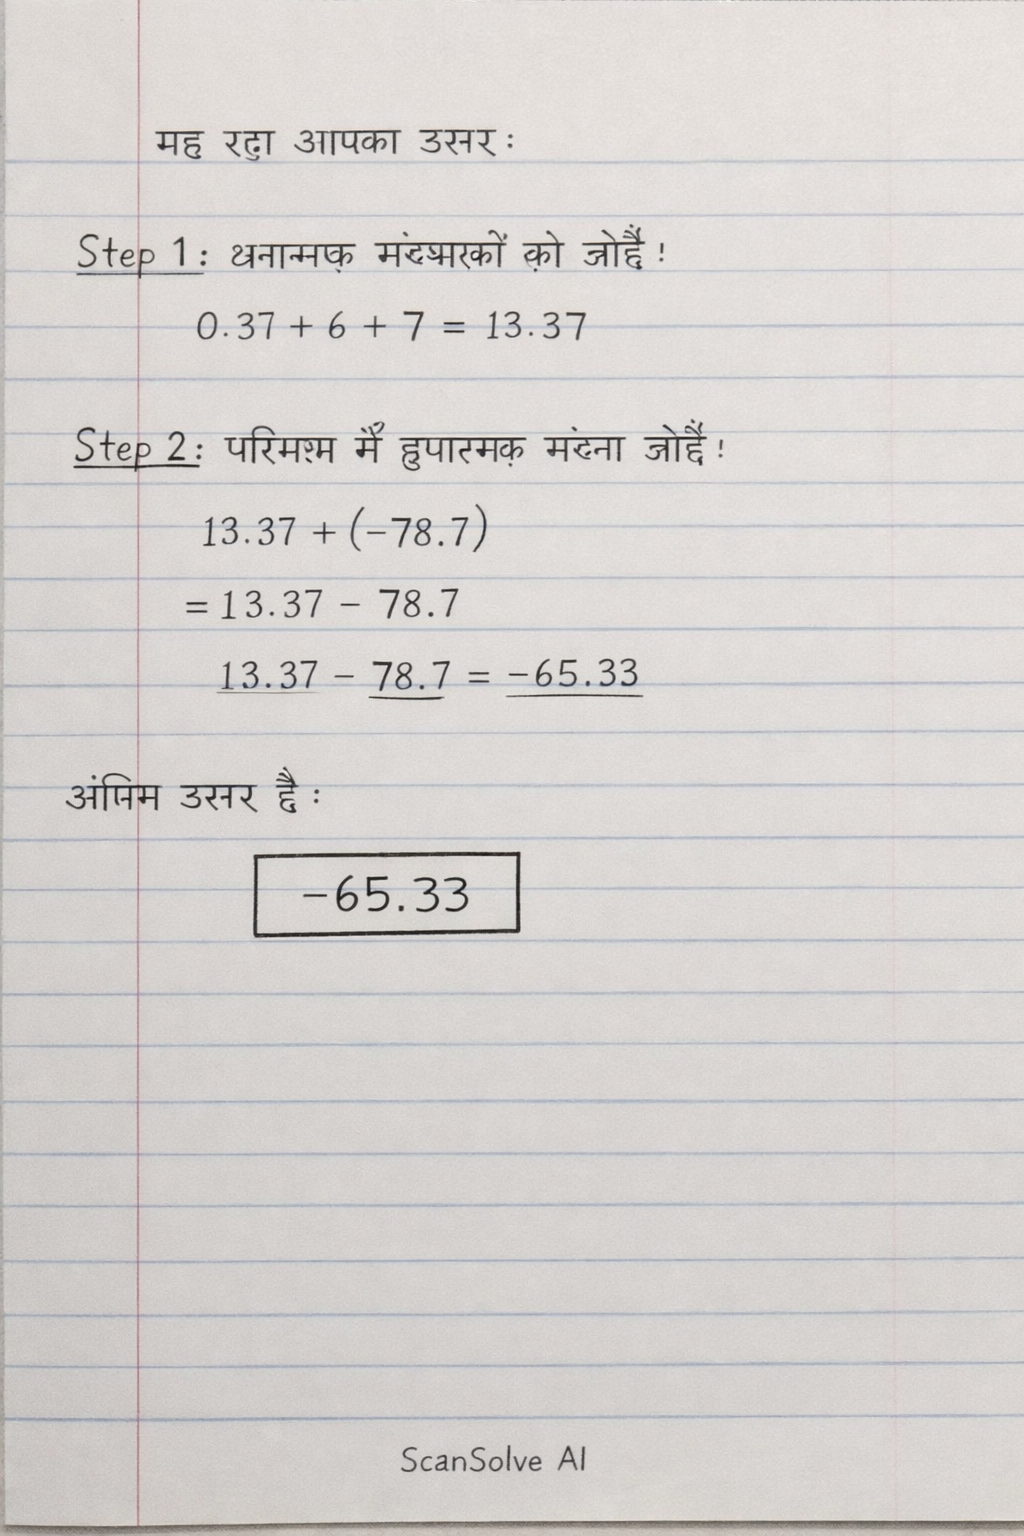 मह रढ़ा आपका उसर:
Step 1: थनान्मक़ को जोहैं!
0.37 + 6 + 7 = 13.37
Step 2: परिमश्म में हुपात्मक़ मंदना जोहैं!
13.37 + (-78.7)
= 13.37 - 78.7
13.37 - 78.7 = -65.33
अंतिम उसर है:
-65.33
ScanSolve AI